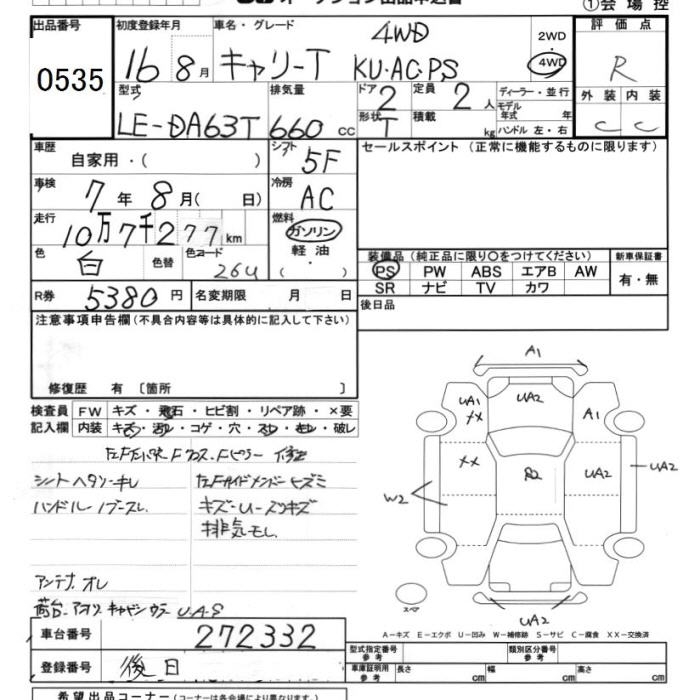 ①会 場 控
出品番号 初度登録年月 車名・グレード 評 価 点
0535
16 8月 キャリーT 4WD
KU・AC・PS
2WD
4WD
R
型式 排気量 ドア 定員 ディーラー・並行 外 装 内 装
LE-DA63T 660 cc 2 2 人
モデル年式 年
形状 T 積載 kg ハンドル 左・右
C C
車歴 シフト セールスポイント (正常に機能するものに限ります)
自家用・( ) 5F
車検 冷房
7 年 8 月( 日) AC
走行 燃料
10万7千277 km ガソリン
軽油・( )
色 色替 色コード
白 26U
装備品 (純正品に限り〇をつけてください) 新車保証書
PS PW ABS エアB AW 有・無
SR ナビ TV カワ
R券 5380 円 名変期限 月 日
後日品
注意事項申告欄 (不具合内容等は具体的に記入して下さい)
修復歴 有 〔箇所 〕
検査員 FW キズ・飛石・ヒビ割・リペア跡・×要
記入欄 内装 キズ・汚レ・コゲ・穴・スレ・キレ・破レ
シートヘタリ・キレ
ハンドル
キズ・U・スリキズ
排気モレ
アンテナオレ
荷台 アオリ キャビンウラ U.A.S
A1
UA1 XX UA2 A1
XX R2 UA2 UA2
W2
スペア
UA2
A-キズ E-エクボ U-凹み W-補修跡 S-サビ C-腐食 XX-交換済
車台番号 272332
登録番号 後日
型式指定番号 参考 類別区分番号 参考
車庫証明用 参考 長さ cm 幅 cm 高さ cm
希望出品コーナー (コーナーは各会場により異なります。)